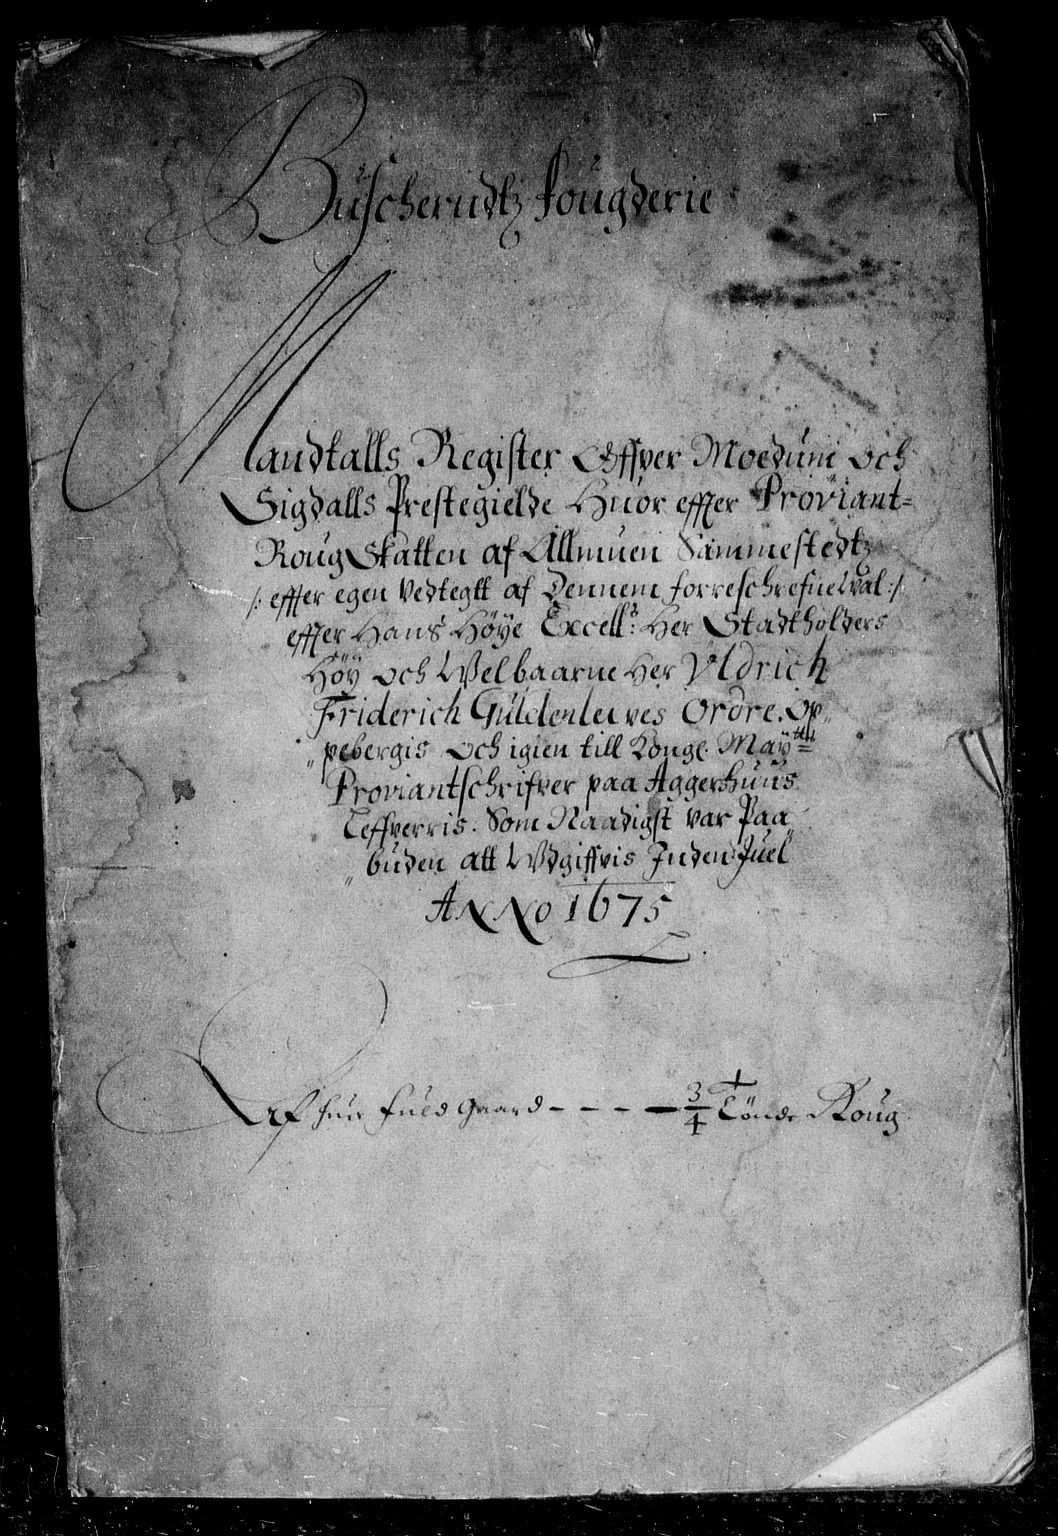 Buscherudtz fougderie
Mandtalls Register Offver Moedum och
Sigdalls Prestegielde Huor effter Proviant=
Roug Skatten af Allmuen Sammestedtz
/: effter egen Vedtegtt af Dennem forreschrefne :/
effter Hans Høye Excell: Her Stadtholders
Høy och Welbaarne Her Vldrich
Friderich Güldenleuves Ordre. Op„
„pebergis och igien till Kongl. Maytt:
Proviantschrifver paa Aggershuus
Leffverris. Som Naadigst var Paa
„buden att Wdgiffvis Inden Juel
ANNO 1675
Af huer fuld Gaard - - - — 3/4 Tønde Roug.